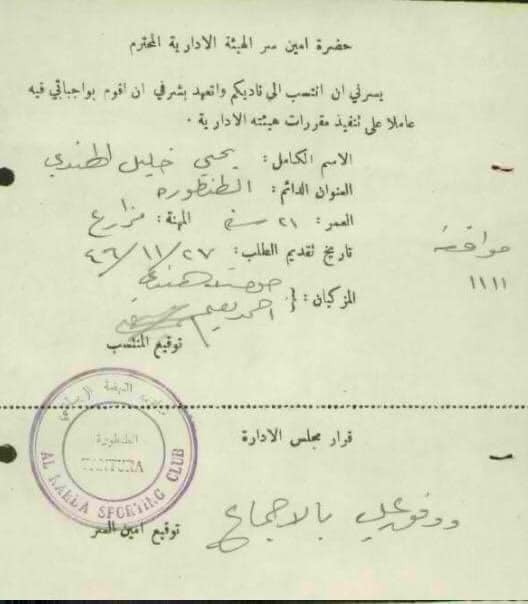 حضرة امين سر الهيئة الادارية المحترم
يسرني ان انتسب الى ناديكم واتعهد بشرفي ان اقوم بواجباتي فيه
عاملا على تنفيذ مقررات هيئته الادارية .
الاسم الكامل : يحيى خليل الهندي
العنوان الدائم : الطنطوره
العمر : ٢١ سنة المهنة : مزارع
تاريخ تقديم الطلب : ٢٧/١١/٤٦
موافقه
١١١١
المزكيان : {
هندي
احمد
توقيع المنتسب
النهضة الرياضي
الطنطورة
TANTURA
AL NAHDA SPORTING CLUB
قرار مجلس الادارة
ووفق عليه بالاجماع
توقيع امين السر